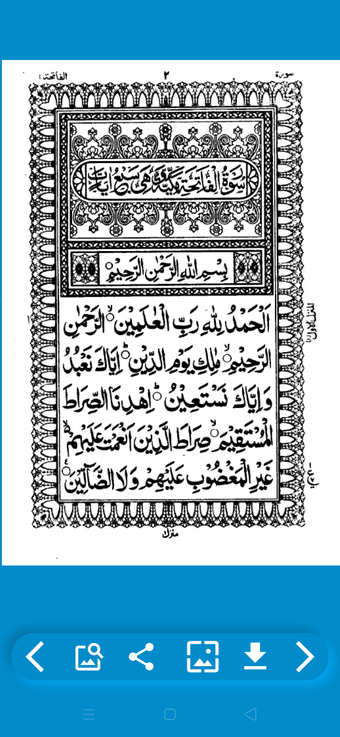 سورة ٢ الفاتحة ١
سُوْرَةُ الْفَاتِحَةِ مَكِّيَّةٌ وَّهِيَ سَبْعُ اٰيَاتٍ
بِسْمِ اللّٰهِ الرَّحْمٰنِ الرَّحِيْمِ
اَلْحَمْدُ لِلّٰهِ رَبِّ الْعٰلَمِيْنَ ۙ الرَّحْمٰنِ
الرَّحِيْمِ ۙ مٰلِكِ يَوْمِ الدِّيْنِ ؕ اِيَّاكَ نَعْبُدُ
وَ اِيَّاكَ نَسْتَعِيْنُ ؕ اِهْدِنَا الصِّرَاطَ
الْمُسْتَقِيْمَ ۙ صِرَاطَ الَّذِيْنَ اَنْعَمْتَ عَلَيْهِمْ ۙ
غَيْرِ الْمَغْضُوْبِ عَلَيْهِمْ وَلَا الضَّآلِّيْنَ
منزل